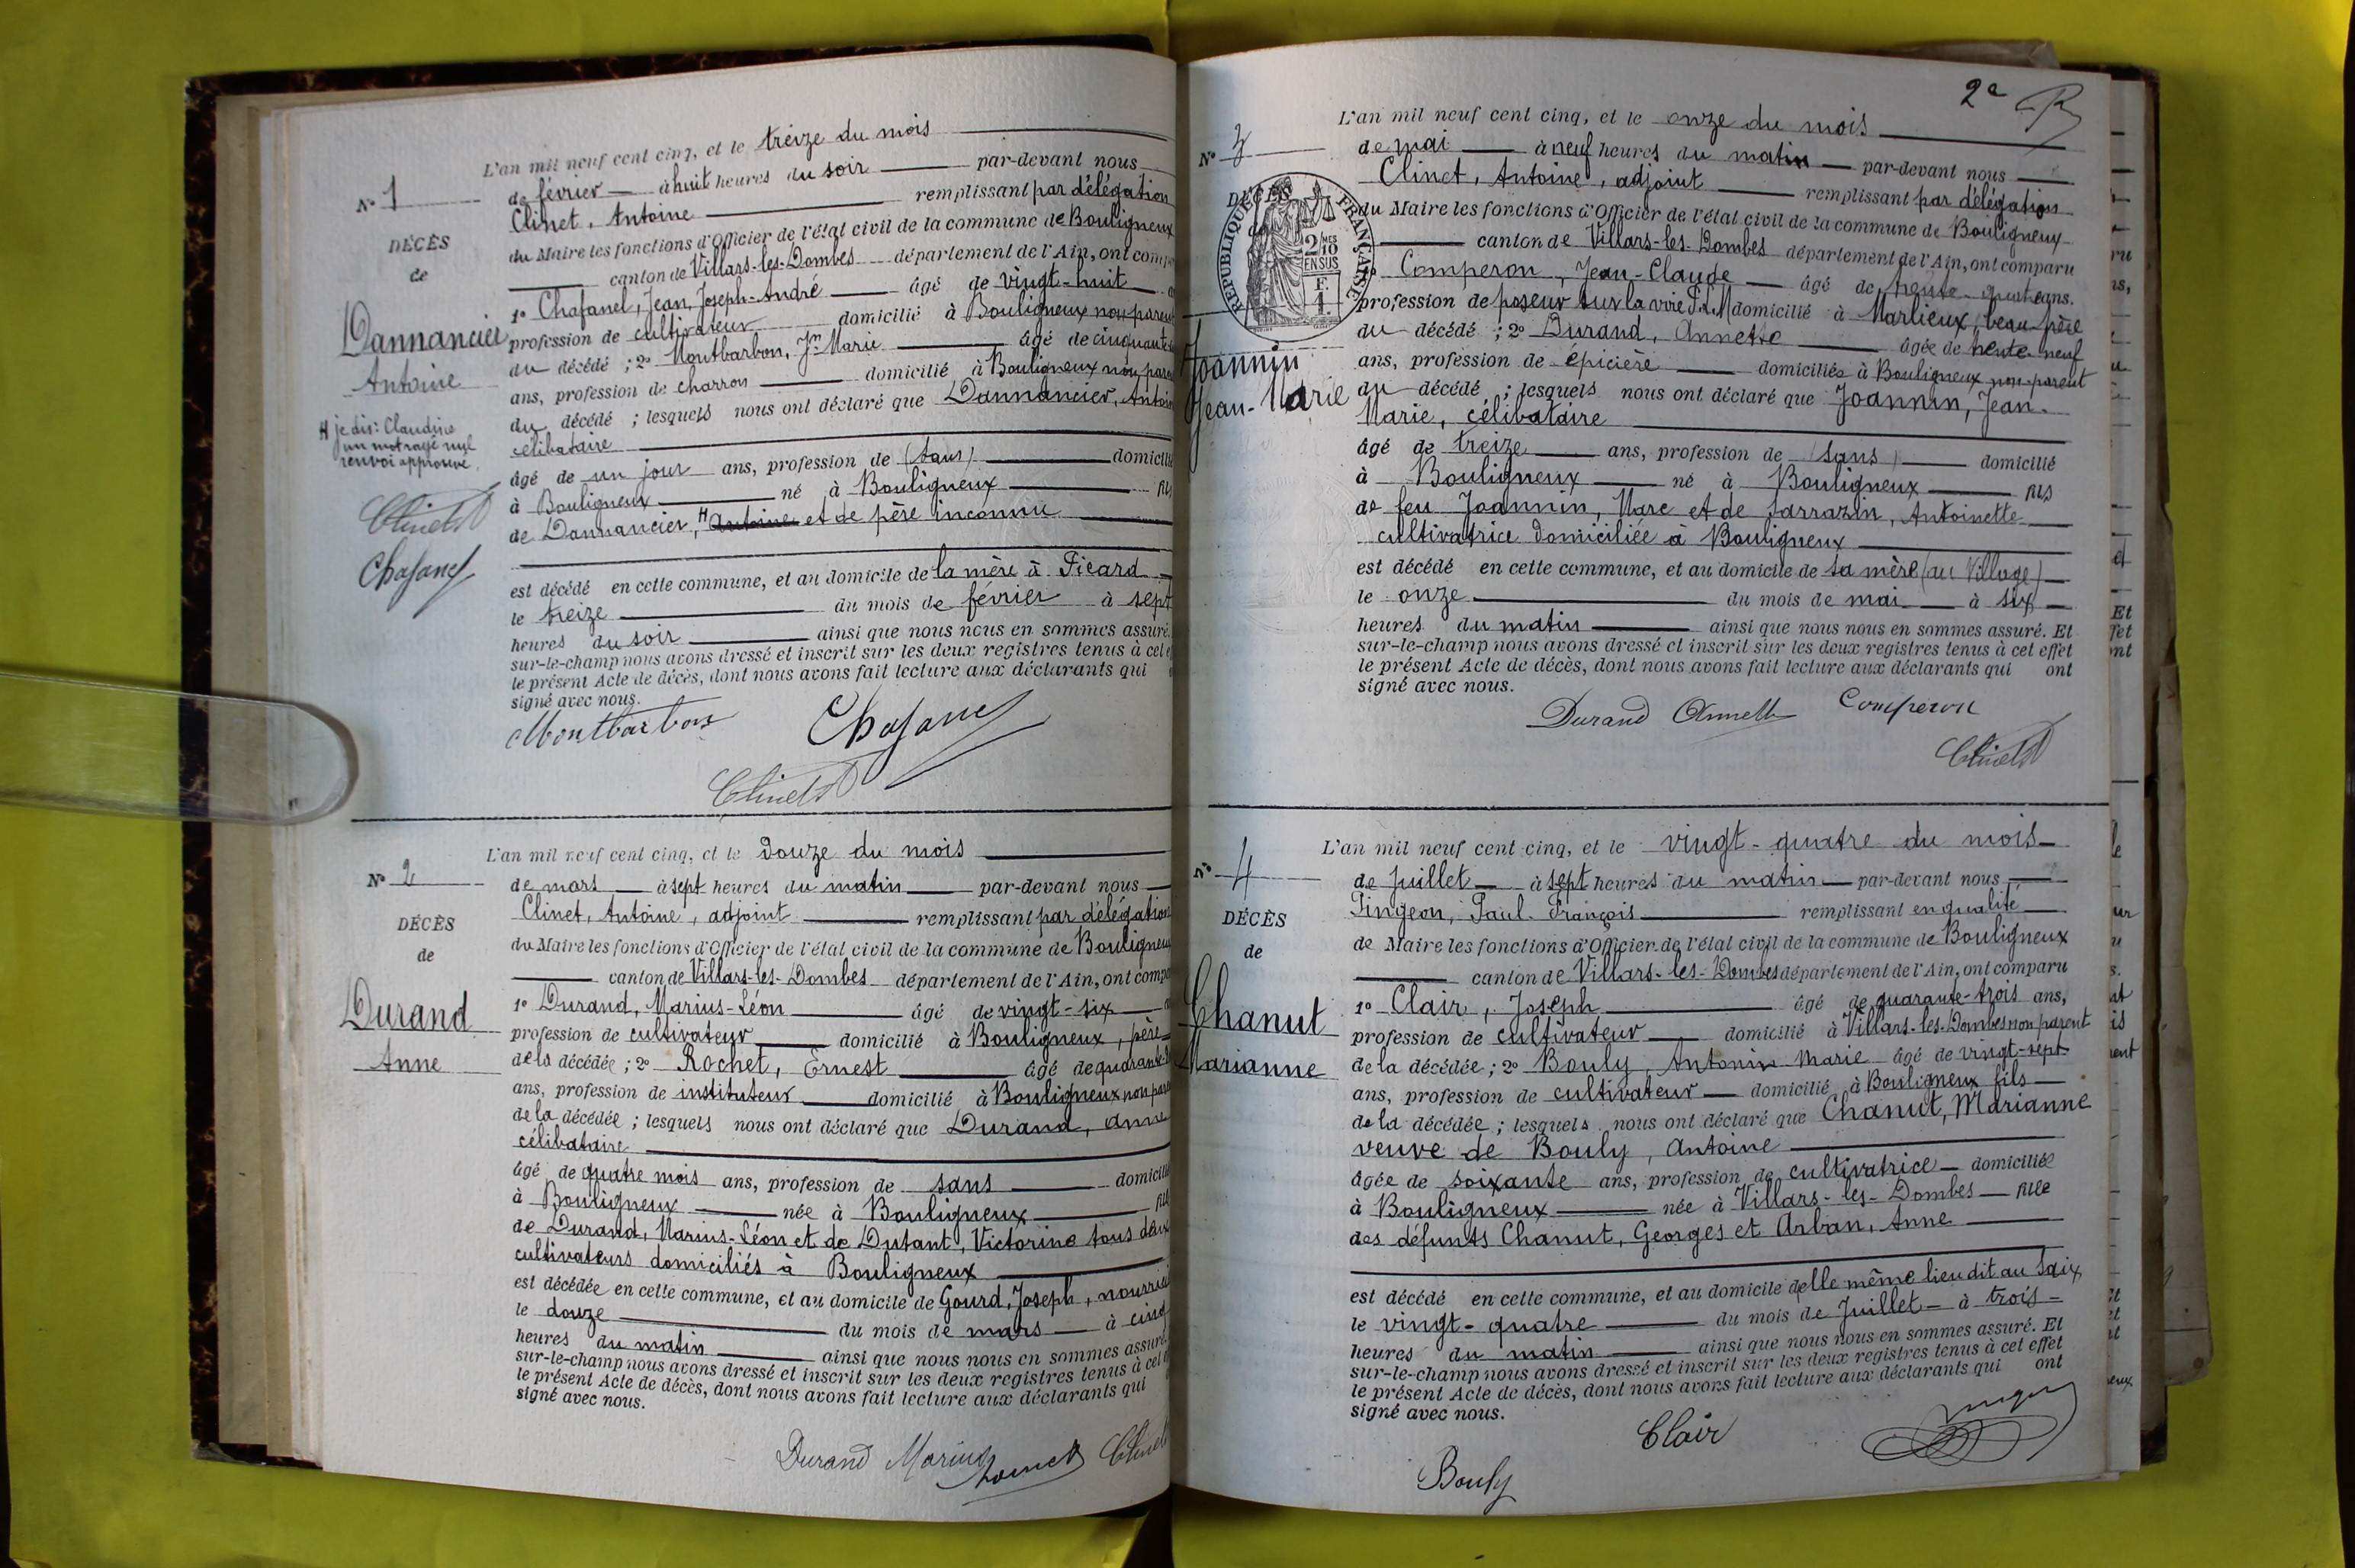 N° 1
DÉCÈS
de
Dannancier
Antoine
H je dis: Claudine
un mot rayé nul
renvoi approuvé.
Clinet
Chafanel
L'an mil neuf cent cinq, et le treize du mois
de février à huit heures du soir par-devant nous
Clinet, Antoine remplissant par délégation
du Maire les fonctions d'Officier de l'état civil de la commune de Bouligneux
canton de Villars-les-Dombes département de l'Ain, ont comp
1° Chafanel, Jean, Joseph-André âgé de vingt-huit
profession de cultivateur domicilié à Bouligneux non parent
du décédé ; 2° Montbarbon, Jn Marie âgé de cinquante
ans, profession de charron domicilié à Bouligneux non paren
du décédé ; lesquels nous ont déclaré que Dannancier, Antoin
célibataire
âgé de un jour ans, profession de (sans) domicilié
à Bouligneux né à Bouligneux fils
de Dannancier, H Antoine et de père inconnu
est décédé en cette commune, et au domicile de la mère à Picard
le treize du mois de février à sept
heures du soir ainsi que nous nous en sommes assuré.
sur-le-champ nous avons dressé et inscrit sur les deux registres tenus à cet e
le présent Acte de décès, dont nous avons fait lecture aux déclarants qui
signé avec nous.
Montbarbon Chafanel
Clinet
N° 2
DÉCÈS
de
Durand
Anne
L'an mil neuf cent cinq, et le douze du mois
de mars à sept heures du matin par-devant nous
Clinet, Antoine, adjoint remplissant par délégation
du Maire les fonctions d'Officier de l'état civil de la commune de Bouligneux
canton de Villars-les-Dombes département de l'Ain, ont compa
1° Durand, Marius-Léon âgé de vingt-six
profession de cultivateur domicilié à Bouligneux, père
de la décédée ; 2° Rochet, Ernest âgé de quarante
ans, profession de instituteur domicilié à Bouligneux non pare
de la décédée ; lesquels nous ont déclaré que Durand, Anne
célibataire
âgé de quatre mois ans, profession de sans domicilié
à Bouligneux née à Bouligneux fill
de Durand, Marius-Léon et de Dutant, Victorine tous deux
cultivateurs domiciliés à Bouligneux
est décédée en cette commune, et au domicile de Gourd, Joseph, nourrici
le douze du mois de mars à cinq
heures du matin ainsi que nous nous en sommes assuré.
sur-le-champ nous avons dressé et inscrit sur les deux registres tenus à cet e
le présent Acte de décès, dont nous avons fait lecture aux déclarants qui
signé avec nous.
Durand Marius Clinet
2e
N° 3
DÉCÈS
RÉPUBLIQUE FRANÇAISE
2/10 MES
EN SUS
Joannin
Jean-Marie
L'an mil neuf cent cinq, et le onze du mois
de mai à neuf heures du matin par-devant nous
Clinet, Antoine, adjoint remplissant par délégation
du Maire les fonctions d'Officier de l'état civil de la commune de Bouligneux
canton de Villars-les-Dombes département de l'Ain, ont comparu
1° Comperon, Jean-Claude âgé de trente-quatre ans,
profession de poseur sur la voie P.L.M domicilié à Marlieux, beau-père
du décédé ; 2° Durand, Annette âgée de trente-neuf
ans, profession de épicière domiciliée à Bouligneux non-parent
du décédé ; lesquels nous ont déclaré que Joannin, Jean-
Marie, célibataire
âgé de treize ans, profession de (sans) domicilié
à Bouligneux né à Bouligneux fils
de feu Joannin, Marc et de Sarrazin, Antoinette
cultivatrice domiciliée à Bouligneux
est décédé en cette commune, et au domicile de sa mère (au Village)
le onze du mois de mai à six
heures du matin ainsi que nous nous en sommes assuré. Et
sur-le-champ nous avons dressé et inscrit sur les deux registres tenus à cet effet
le présent Acte de décès, dont nous avons fait lecture aux déclarants qui ont
signé avec nous.
Durand Annette Comperon
Clinet
N° 4
DÉCÈS
de
Chanut
Marianne
L'an mil neuf cent cinq, et le vingt-quatre du mois
de Juillet à sept heures du matin par-devant nous
Pingeon, Paul-François remplissant en qualité
de Maire les fonctions d'Officier de l'état civil de la commune de Bouligneux
canton de Villars-les-Dombes département de l'Ain, ont comparu
1° Clair, Joseph âgé de quarante-trois ans,
profession de cultivateur domicilié à Villars-les-Dombes non parent
de la décédée ; 2° Bouly, Antonin Marie âgé de vingt-sept
ans, profession de cultivateur domicilié à Bouligneux fils
de la décédée ; lesquels nous ont déclaré que Chanut, Marianne
veuve de Bouly, Antoine
âgée de soixante ans, profession de cultivatrice domiciliée
à Bouligneux née à Villars-les-Dombes fille
des défunts Chanut, Georges et Arban, Anne
est décédé en cette commune, et au domicile d'elle même lieu dit au Saix
le vingt-quatre du mois de Juillet à trois
heures du matin ainsi que nous nous en sommes assuré. Et
sur-le-champ nous avons dressé et inscrit sur les deux registres tenus à cet effet
le présent Acte de décès, dont nous avons fait lecture aux déclarants qui ont
signé avec nous.
Clair
Bouly